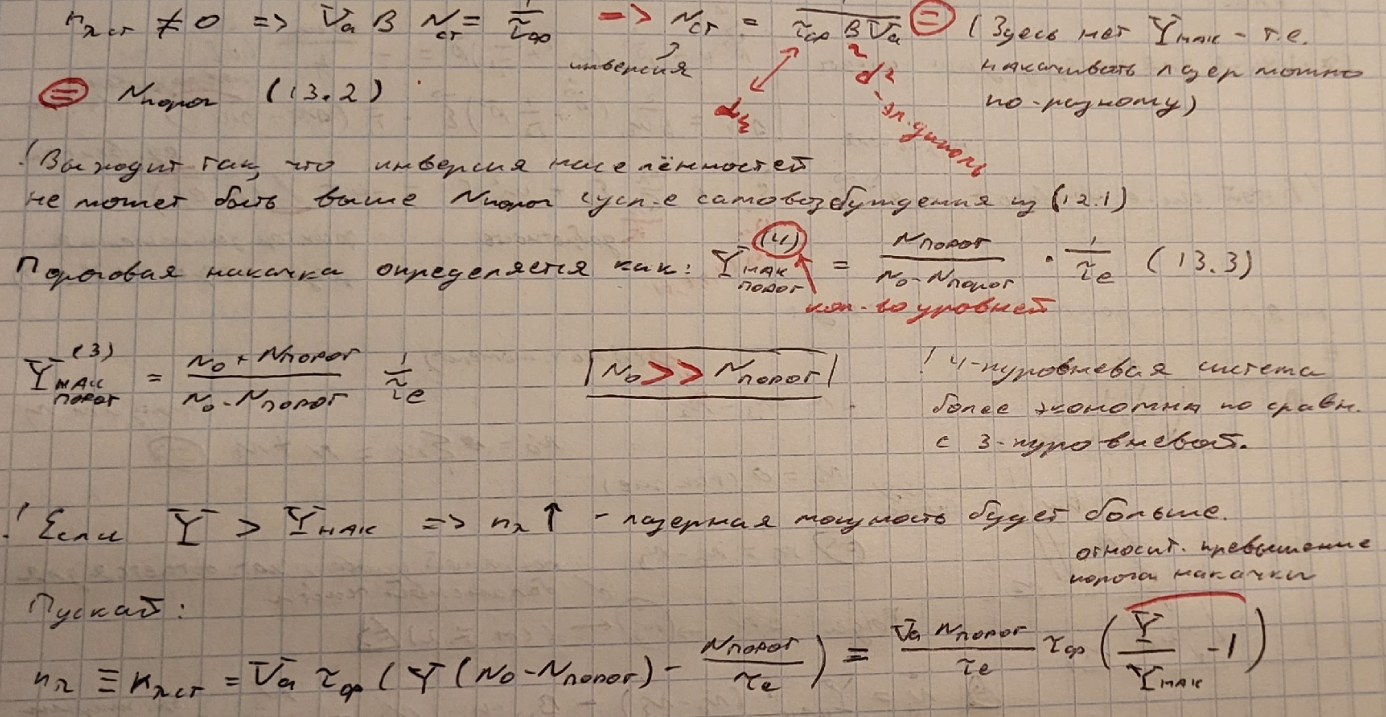 n_λст ≠ 0 => V̄a B N_ст = 1/τ_ф => N_ст = 1/(τ_ф B V̄a) = (Здесь нет Y_нак - т.е.
инверсия накачивать лазер можно
= N_порог (13.2) dξ d² - эл. диполь по-разному)
! Выходит так, что инверсия населённостей
не может быть выше N_порог (усл-е самовозбуждения из (12.1)
Пороговая накачка определяется как: Y_нак порог^(4) = N_порог/(N_0 - N_порог) · 1/τ_e (13.3)
кол-во уровней
Y_нак порог^(3) = (N_0 + N_порог)/(N_0 - N_порог) 1/τ_e |N_0 >> N_порог| ! 4-хуровневая система
более экономна по сравн.
с 3-хуровневой.
! Если Y > Y_нак => n_λ ↑ - лазерная мощность будет больше.
относит. превышение
порога накачки
Пускай:
n_λ ≡ n_λст = V̄a τ_ф (Y (N_0 - N_порог) - N_порог/τ_e) = (V̄a N_порог)/τ_e τ_ф (Y/Y_нак - 1)